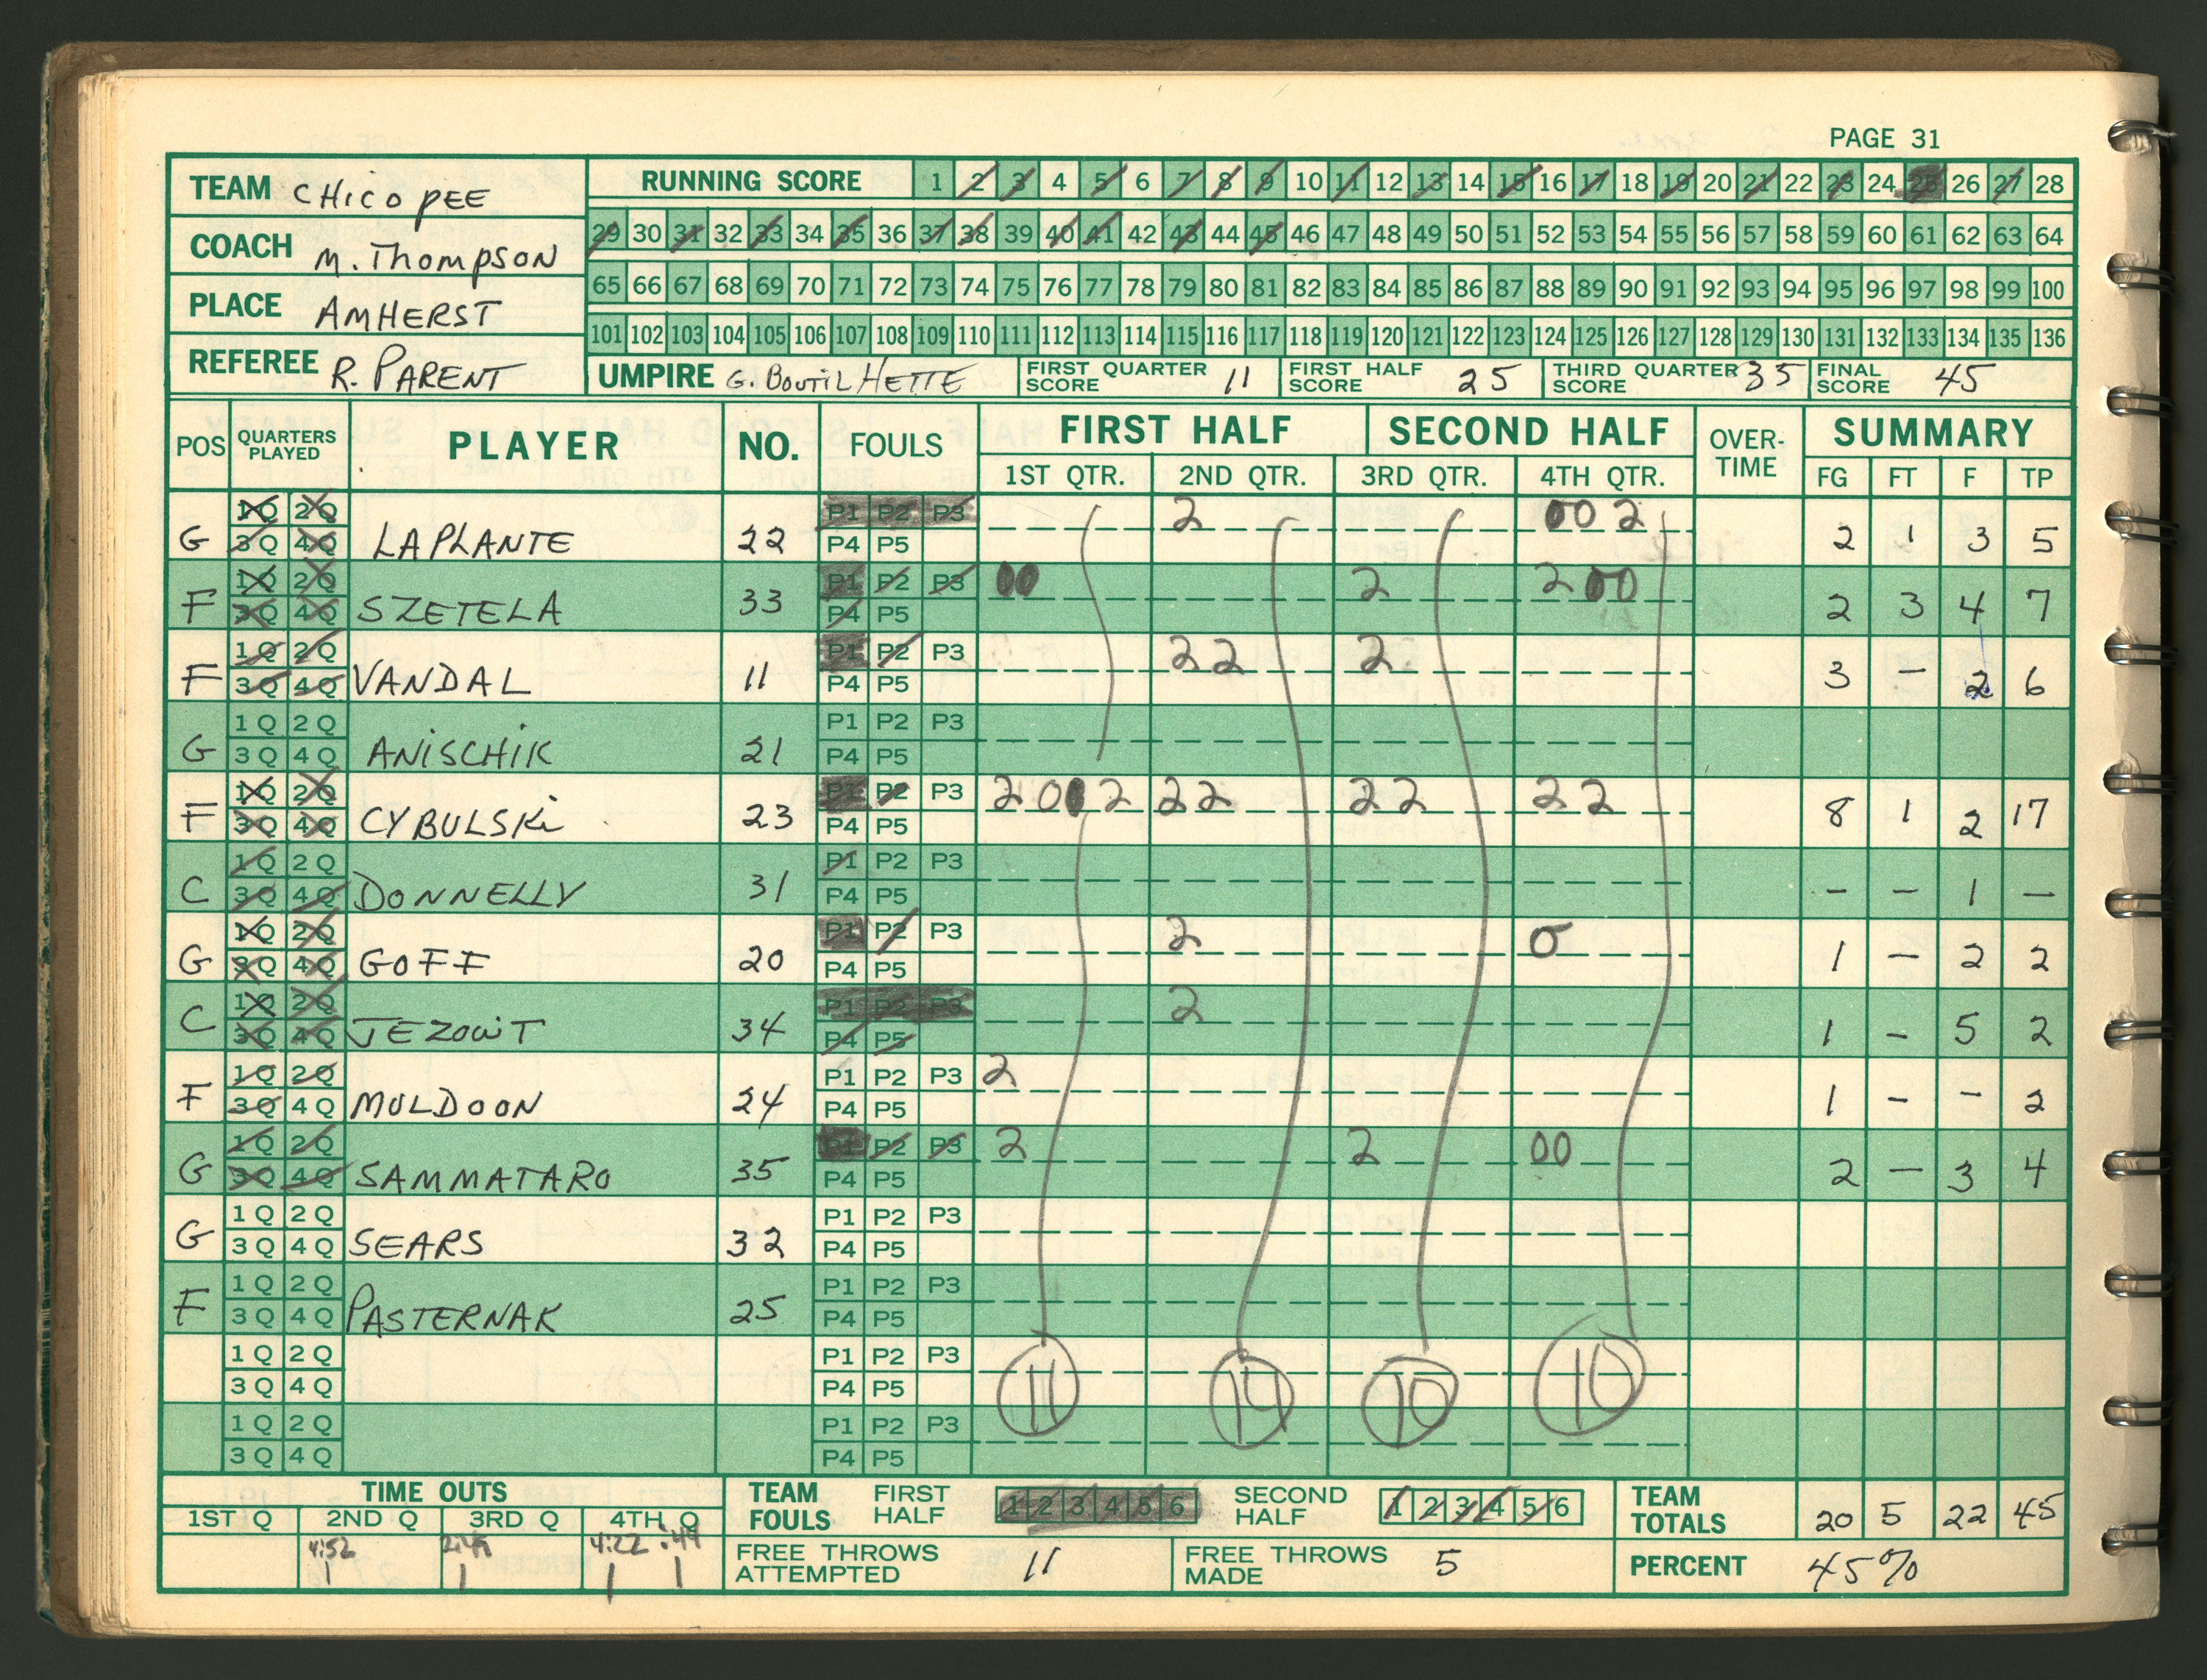 PAGE 31
TEAM CHICOPEE
COACH M. THOMPSON
PLACE AMHERST
REFEREE R. PARENT
RUNNING SCORE 1 2 3 4 5 6 7 8 9 10 11 12 13 14 15 16 17 18 19 20 21 22 23 24 25 26 27 28
29 30 31 32 33 34 35 36 37 38 39 40 41 42 43 44 45 46 47 48 49 50 51 52 53 54 55 56 57 58 59 60 61 62 63 64
65 66 67 68 69 70 71 72 73 74 75 76 77 78 79 80 81 82 83 84 85 86 87 88 89 90 91 92 93 94 95 96 97 98 99 100
101 102 103 104 105 106 107 108 109 110 111 112 113 114 115 116 117 118 119 120 121 122 123 124 125 126 127 128 129 130 131 132 133 134 135 136
UMPIRE G. BOUTILHETTE FIRST QUARTER SCORE 11 FIRST HALF SCORE 25 THIRD QUARTER SCORE 35 FINAL SCORE 45
POS QUARTERS PLAYED PLAYER NO. FOULS FIRST HALF SECOND HALF OVER-TIME SUMMARY
1ST QTR. 2ND QTR. 3RD QTR. 4TH QTR. FG FT F TP
1Q 2Q P1 P2 P3 2 0 0 2
G 3Q 4Q LAPLANTE 22 P4 P5 2 1 3 5
1Q 2Q P1 P2 P3 0 0 2 2 0 0
F 3Q 4Q SZETELA 33 P4 P5 2 3 4 7
1Q 2Q P1 P2 P3 2 2 2
F 3Q 4Q VANDAL 11 P4 P5 3 - 2 6
1Q 2Q P1 P2 P3
G 3Q 4Q ANISCHIK 21 P4 P5
1Q 2Q P1 P2 P3 2 0 0 2 2 2 2 2 2 2
F 3Q 4Q CYBULSKI 23 P4 P5 8 1 2 17
1Q 2Q P1 P2 P3
C 3Q 4Q DONNELLY 31 P4 P5 - - 1 -
1Q 2Q P1 P2 P3 2 0
G 3Q 4Q GOFF 20 P4 P5 1 - 2 2
1Q 2Q P1 P2 P3 2
C 3Q 4Q JEZOWIT 34 P4 P5 1 - 5 2
1Q 2Q P1 P2 P3 2
F 3Q 4Q MULDOON 24 P4 P5 1 - - 2
1Q 2Q P1 P2 P3 2 2 0 0
G 3Q 4Q SAMMATARO 35 P4 P5 2 - 3 4
1Q 2Q P1 P2 P3
G 3Q 4Q SEARS 32 P4 P5
1Q 2Q P1 P2 P3
F 3Q 4Q PASTERNAK 25 P4 P5
1Q 2Q P1 P2 P3
3Q 4Q P4 P5 11 14 10 10
1Q 2Q P1 P2 P3
3Q 4Q P4 P5
TIME OUTS
1ST Q 2ND Q 3RD Q 4TH Q
4:52 4:22 :49
1 1 1 1
TEAM FOULS FIRST HALF 1 2 3 4 5 6 SECOND HALF 1 2 3 4 5 6 TEAM TOTALS 20 5 22 45
FREE THROWS ATTEMPTED 11 FREE THROWS MADE 5 PERCENT 45%